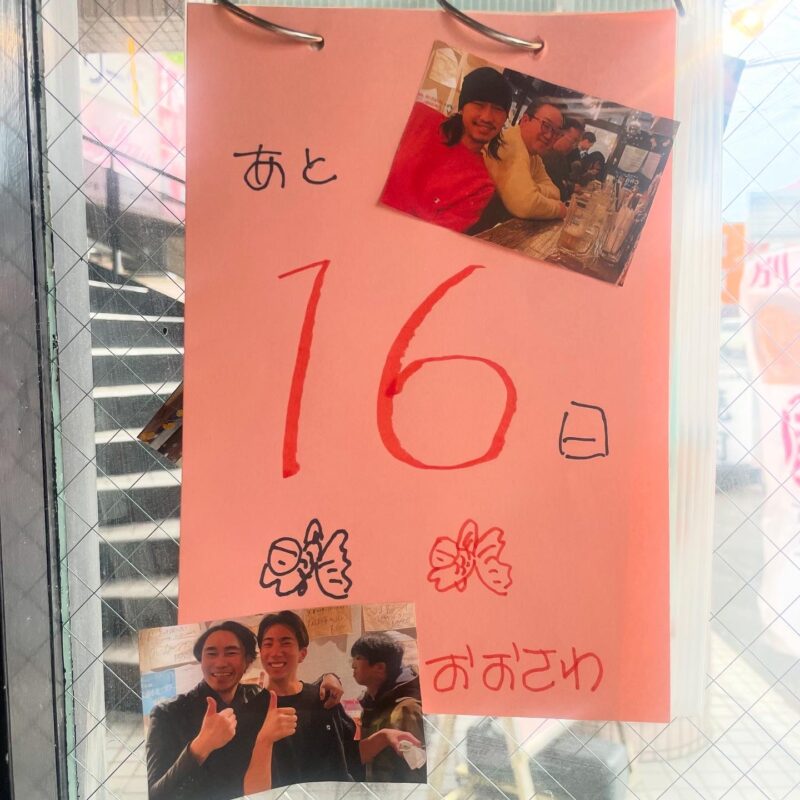 あと
16
日
おおさわ